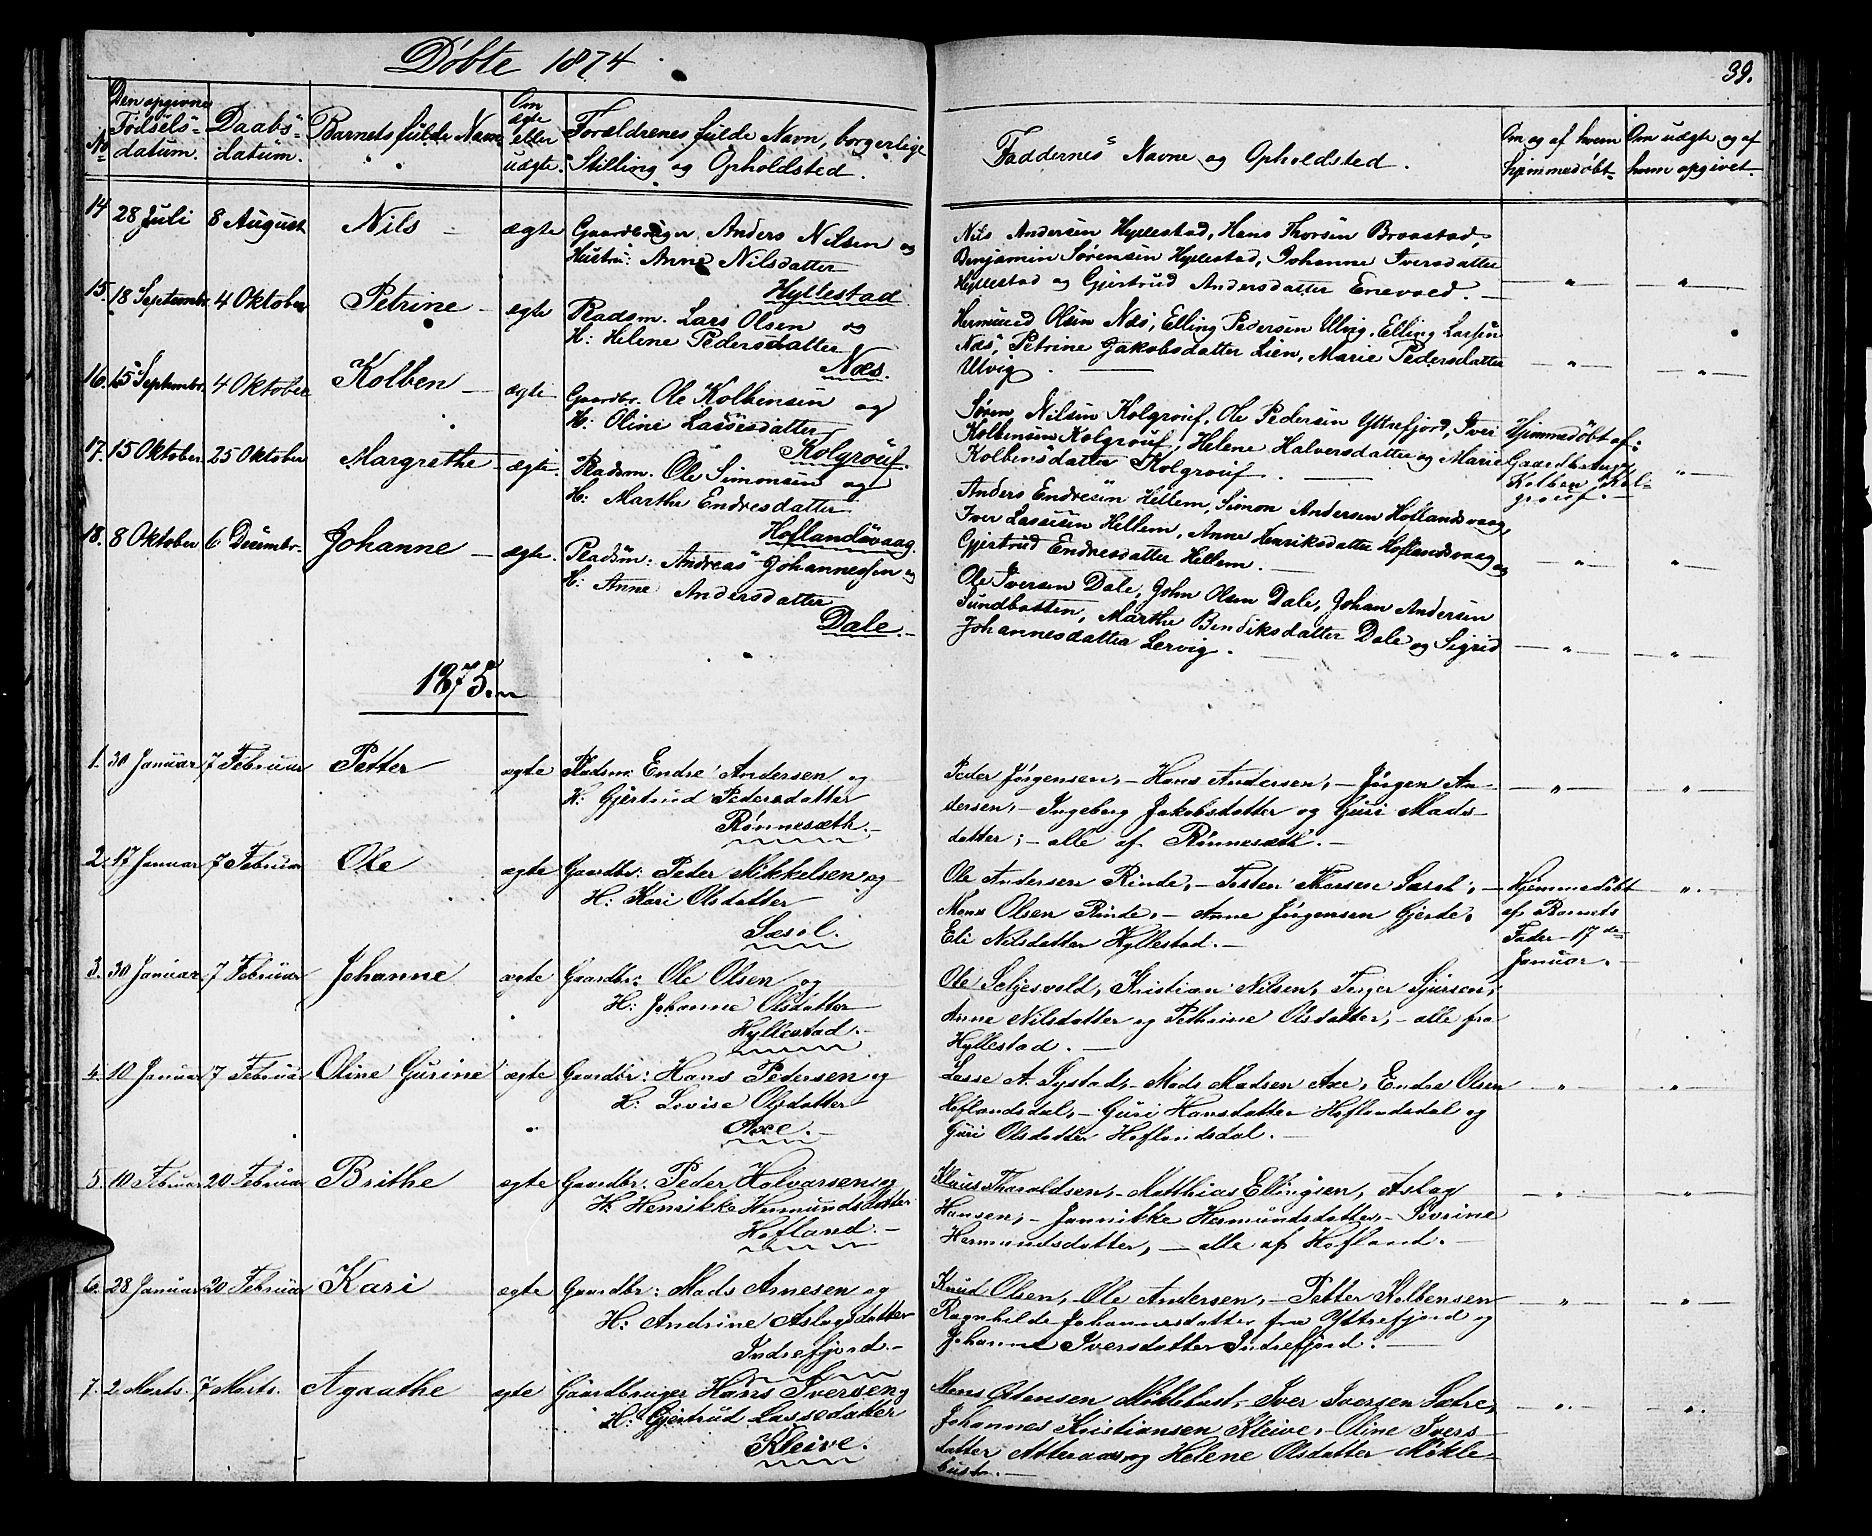 Døbte 1874
39.
No
Den opgivne Fødsels-datum.
Daabs-datum.
Barnets fulde Navn
Om ægte eller uægte.
Forældrenes fulde Navn, borgerlige Stilling og Opholdsted.
Faddernes Navne og Opholdsted.
Om og af hvem hjemmedøbt.
Om uægte og af hvem opgivet.
14 28 Juli 8 August Nils – ægte Gaardbruger Anders Nilsen og
Hustru: Anne Nilsdatter
Hyllestad
Nils Andersen Hyllestad, Hans Thorsen Braastad,
Benjamin Sørensen Hyllestad, Johanne Iversdatter
Hyllestad og Gjertrud Andersdatter Enevold. – " – – " –
15. 18 Septembr 4 Oktober Petrine – ægte Pladsm. Lars Olsen og
H: Helene Pedersdatter
Næs.
Hermund Olsen Næs, Elling Pedersen Ulvig, Elling Larsen
Næs, Petrine Jakobsdatter Lien, Marie Pedersdatter
Ulvig. – " – – " –
16. 15 Septembr. 4 Oktober Kolben – ægte Gaardbr. Ole Kolbensen og
H: Oline Lassesdatter
Kolgrouf.
Søren Nilsen Kolgrouf, Ole Pedersen Yttrefjord, Iver
Kolbensen Kolgrouf, Helene Halversdatter og Marie
Kolbensdatter Kolgrouf.
Hjemmedøbt af
Gaardbruger
Kolben Kol-
grouf. – – " –
17. 15 Oktober 25 Oktober Margrethe – ægte. Pladsm. Ole Simonsen og
H: Marthe Endresdatter
Hoflandsvaag.
Anders Endresen Hellem, Simon Andersen Hoflandsvaag,
Iver Lassesen Hellem, Anne Henriksdatter Hoflandsvaag og
Gjertrud Endresdatter Hellem. – " – – " –
18. 8 Oktober 6 Decembr. Johanne – ægte. Pladsm: Andreas Johannessen og
H: Anne Andersdatter
Dale. –
Ole Iversen Dale, John Olsen Dale, Johan Andersen
Sundbotten, Marthe Bendiksdatter Dale og Sigrid
Johannesdatter Lervig. – " – – " –
1875.
1. 30 Januar 7 Februar Petter ægte Pladsm. Endre Andersen og
H: Gjertrud Pedersdatter
Rønnesæth. –
Peder Jørgensen, – Hans Andersen, – Jørgen An-
dersen, – Ingeborg Jakobsdatter og Guri Mads-
datter; – alle af Rønnesæth. – – " – – " –
2. 17 Januar 7 Februar Ole ægte Gaardbr: Peder Mikkelsen og
H: Kari Olsdatter
Sæsol.
Ole Andersen Rinde, – Torsten Thorsen Sæsol, –
Mons Olsen Rinde, – Anne Jørgensen Gjerde,
Eli Nilsdatter Hyllestad. –
Hjemmedøbt
af Barnets
Fader – 17de
Januar. – – " –
3. 30 Januar 7 Februar Johanne ægte Gaardbr: Ole Olsen og
H: Johanne Olsdatter
Hyllestad. –
Ole Seljesvold, Kristian Nilsen, Torger Sjursen,
Anne Nilsdatter og Pethrine Olsdatter, – alle fra
Hyllestad. –
4. 10 Januar 7 Februar Oline Gurine ægte Gaardbr: Hans Pedersen og
H: Lovise Olsdatter
Axe. –
Lasse A. Systad, – Mads Madsen Axe, Endre Olsen
Hoflandsdal, – Guri Hansdatter Hoflandsdal og
Guri Olsdatter Hoflandsdal. – – " – – " –
5. 10 Februar 20 Februar Brithe ægte Gaardbr: Peder Halvorsen og
H: Henrikke Hermundsdatter
Hofland. –
Klaus Tharaldsen, – Matthias Ellingsen, Aslag
Hansen, – Jannikke Hermundsdatter, – Sevrine
Hermundsdatter, – alle af Hofland. – – " – – " –
6. 28 Januar 20 Februar Kari ægte Gaardbr: Mads Arnesen og
H: Andrine Aslagsdatter
Indrefjord. –
Knud Olsen, – Ole Andersen, – Petter Kolbensen
Ragnhilde Johannesdatter fra Yttrefjord og
Johanne Iversdatter Indrefjord. – – " – – " –
7. 2 Marts. 7 Marts. Agaathe ægte Gaardbruger Hans Iversen og
H: Gjertrud Lassedatter
Kleive.
Mons Østensen Møklebust, – Iver Iversen Sætre,
Johannes Kristiansen Kleive, – Oline Ivers-
datter Atteraas og Helene Olsdatter Møkle-
bust. – – " – – " –